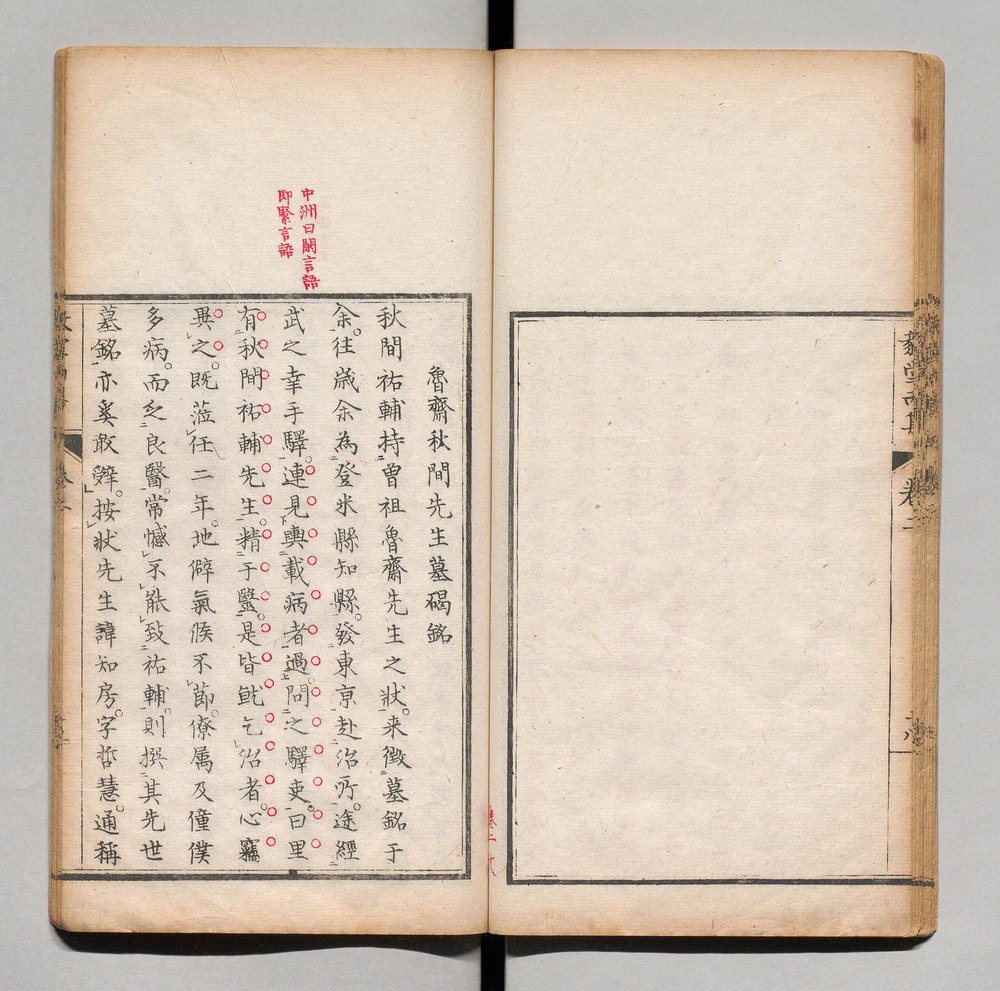 毅堂丙集
卷二
中洲曰開言語
即緊言語
魯齋秋間先生墓碣銘
秋間祐輔持曾祖魯齋先生之狀来徴墓銘于
余往歳余為登米縣知縣發東亰赴治所途經
武之幸手驛連見輿載病者過問之驛吏曰里
有秋間祐輔先生精于毉是皆就乞治者心竊
異之既莅任二年地僻氣候不節僚属及僮僕
多病而乏良醫常憾不能致祐輔則撰其先世
墓銘亦奚敢辤按状先生諱知房字哲慧通稱